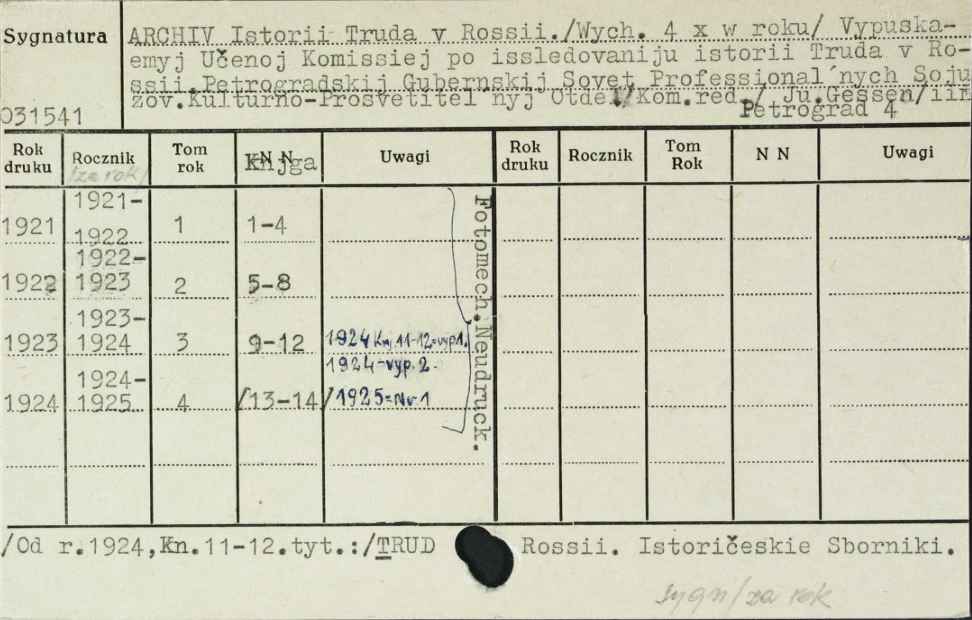 Sygnatura
ARCHIV Istorii Truda v Rossii./Wych. 4 x w roku/ Vypuska-
emyj Učenoj Komissiej po issledovaniju istorii Truda v Ro-
ssii.Petrogradskij Gubernskij Sovet Professional'nych Soju
zov.Kulturno-Prosvetitel'nyj Otdel/Kom.red./ Ju.Gessen/iin
031541 Petrograd 4
Rok druku Rocznik /za rok/ Tom rok Knjga Uwagi Rok druku Rocznik Tom Rok N N Uwagi
1921 1921-1922 1 1-4
1922 1922-1923 2 5-8
1923 1923-1924 3 9-12 1924 Kn. 11-12=vyp1.
1924-vyp.2.
1924 1924-1925 4 /13-14/ 1925=Nr 1
Fotomech.Neudruck.
/Od r.1924,Kn.11-12.tyt.:/TRUD Rossii. Istoričeskie Sborniki.
sygn/za rok